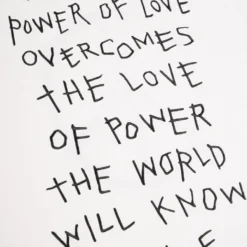 POWER OF LOVE
OVERCOMES
THE LOVE
OF POWER
THE WORLD
WILL KNOW